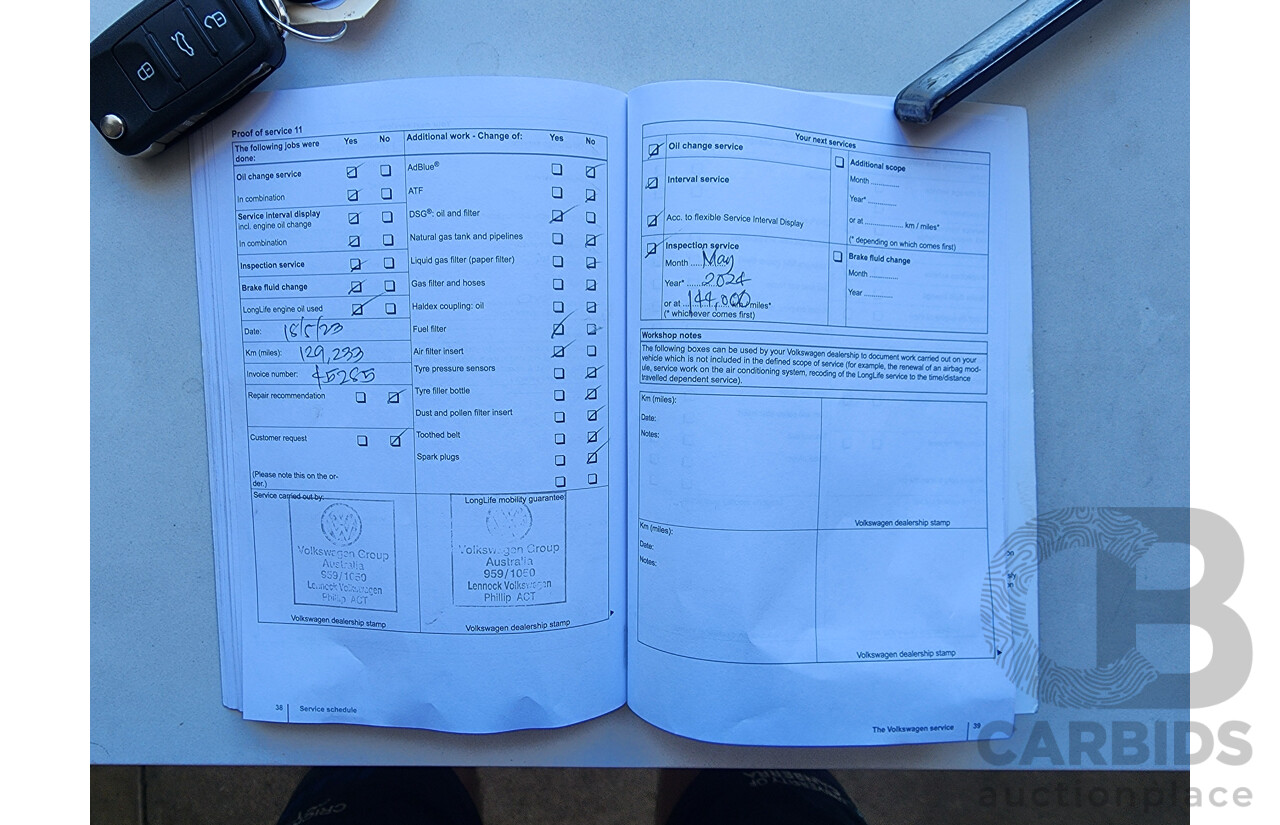 Proof of service 11
The following jobs were done:
Yes No
Oil change service
In combination
Service interval display
incl. engine oil change
In combination
Inspection service
Brake fluid change
LongLife engine oil used
Date: 18/5/23
Km (miles): 129,233
Invoice number: 45285
Repair recommendation
Customer request
(Please note this on the or-
der.)
Additional work - Change of:
Yes No
AdBlue®
ATF
DSG®: oil and filter
Natural gas tank and pipelines
Liquid gas filter (paper filter)
Gas filter and hoses
Haldex coupling: oil
Fuel filter
Air filter insert
Tyre pressure sensors
Tyre filler bottle
Dust and pollen filter insert
Toothed belt
Spark plugs
Service carried out by:
Volkswagen Group
Australia
959/1050
Lennock Volkswagen
Phillip ACT
Volkswagen dealership stamp
LongLife mobility guarantee:
Volkswagen Group
Australia
959/1050
Lennock Volkswagen
Phillip ACT
Volkswagen dealership stamp
38 Service schedule
Your next services
Oil change service
Interval service
Acc. to flexible Service Interval Display
Inspection service
Month ..... May
Year* ...... 2024
or at ... 144,000 km/miles*
(* whichever comes first)
Additional scope
Month ............
Year* ............
or at ................ km / miles*
(* depending on which comes first)
Brake fluid change
Month ............
Year ............
Workshop notes
The following boxes can be used by your Volkswagen dealership to document work carried out on your
vehicle which is not included in the defined scope of service (for example, the renewal of an airbag mod-
ule, service work on the air conditioning system, recoding of the LongLife service to the time/distance
travelled dependent service).
Km (miles):
Date:
Notes:
Volkswagen dealership stamp
Km (miles):
Date:
Notes:
Volkswagen dealership stamp
The Volkswagen service 39
CARBIDS
auctionplace